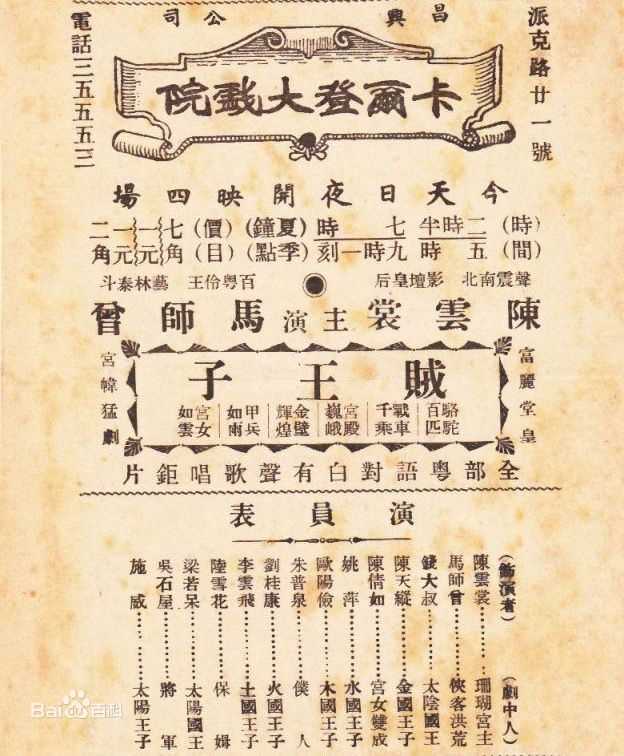 昌興公司
派克路廿一號
電話三五五五三
卡爾登大戲院
今天日夜開映四場
(時間) 二時半 五時 七時 九時一刻 (夏季鐘點) (價目) 七角 一元 一元二角
聲震南北 影壇皇后 百粵伶王 藝林泰斗
陳雲裳 主演 馬師曾
富麗堂皇
賊王子
駱駝百匹 戰車千乘 宮殿巍峨 金壁輝煌 甲兵如雨 宮女如雲
宮幃猛劇
全部粵語對白有聲歌唱鉅片
演員表
(飾演者) (劇中人)
陳雲裳……珊瑚宮主
馬師曾……俠客洪荒
錢大叔……太陰國王
陳天縱……金國王子
陳倩如……宮女雙成
姚萍……水國王子
歐陽儉……木國王子
朱普泉……僕人
劉桂康……火國王子
李雲飛……土國王子
陸雪花……保姆
梁若呆……太陽國王
吳石屋……將軍
施威……太陽王子
Bai百科